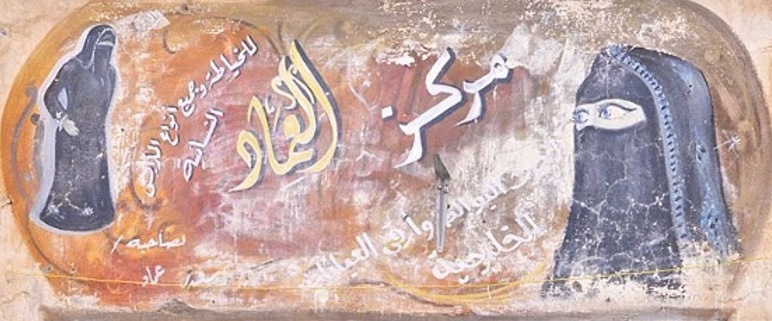 مركز
العماد
للخياطة وجميع أنواع الملابس
النسائية
وأرقى العبايات
الخليجية
لصاحبه /
عماد